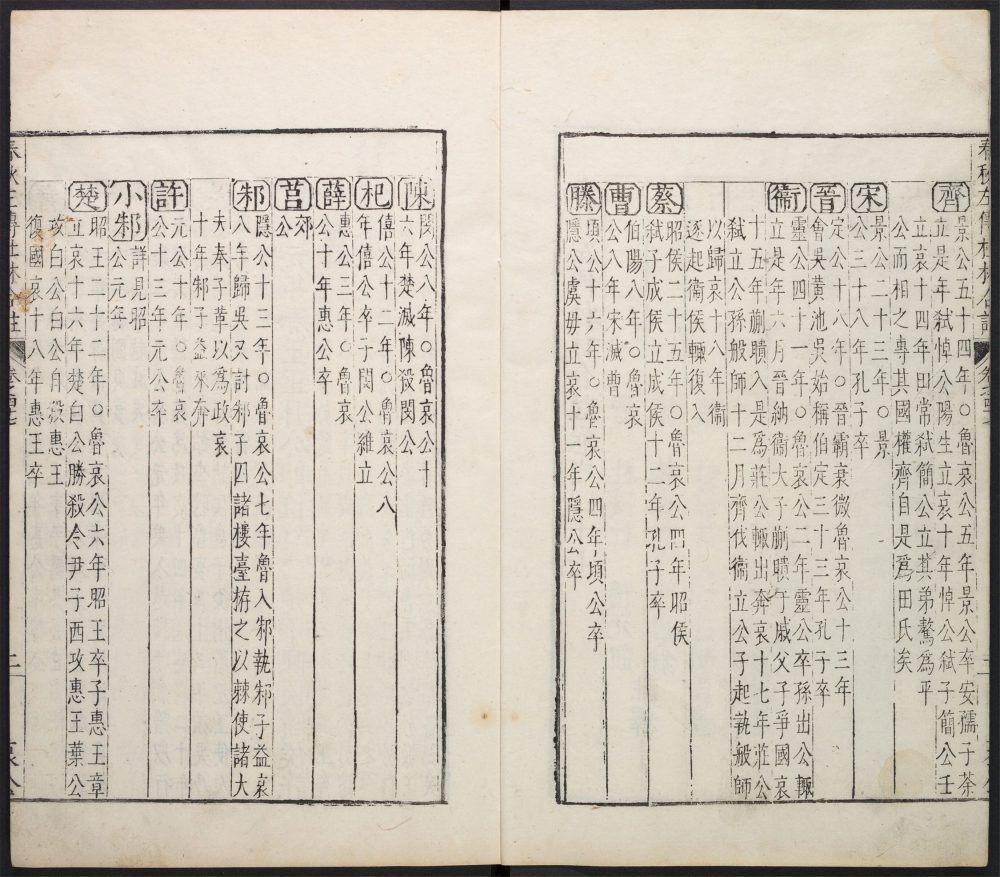 春秋左傳杜林合註
齊 景公五十四年○魯哀公五年景公卒安孺子荼
立是年弒悼公陽生立哀十年悼公弒子簡公壬
立哀十四年田常弒簡公立其弟驁為平
公而相之專其國權齊自是為田氏矣
宋 景公二十三年○景
公三十八年孔子卒
晉 定公十八年○晉霸衰微魯哀公十三年
會吳黃池吳始稱伯定三十三年孔子卒
衛 靈公四十一年○魯哀公二年靈公卒孫出公輒
立是年六月晉納衛大子蒯聵于戚父子爭國哀
十五年蒯聵入是為莊公輒出奔哀十七年莊公
弒立公孫般師十二月齊伐衛立公子起執般師
以歸哀十八年衛
逐起衛侯輒復入
蔡 昭侯二十五年○魯哀公四年昭侯
弒子成侯立成侯十二年孔子卒
曹 伯陽八年○魯哀
公八年宋滅曹
滕 頃公十六年○魯哀公四年頃公卒
隱公虞毋立哀十一年隱公卒
陳 閔公八年○魯哀公十
六年楚滅陳殺閔公
杞 僖公十二年○魯哀公八
年僖公卒子閔公維立
薛 惠公三年○魯哀
公十年惠公卒
莒 郊
公
邾 隱公十三年○魯哀公七年魯入邾執邾子益哀
八年歸吳又討邾子囚諸樓臺栫之以棘使諸大
夫奉子革以為政哀
十年邾子益來奔
許 元公十年○魯哀
公十三年元公卒
小邾 詳見昭
公元年
楚 昭王二十二年○魯哀公六年昭王卒子惠王章
立哀十六年楚白公勝殺令尹子西攻惠王葉公
攻白公白公自殺惠王
復國哀十八年惠王卒
春秋左傳杜林合註 二 哀公